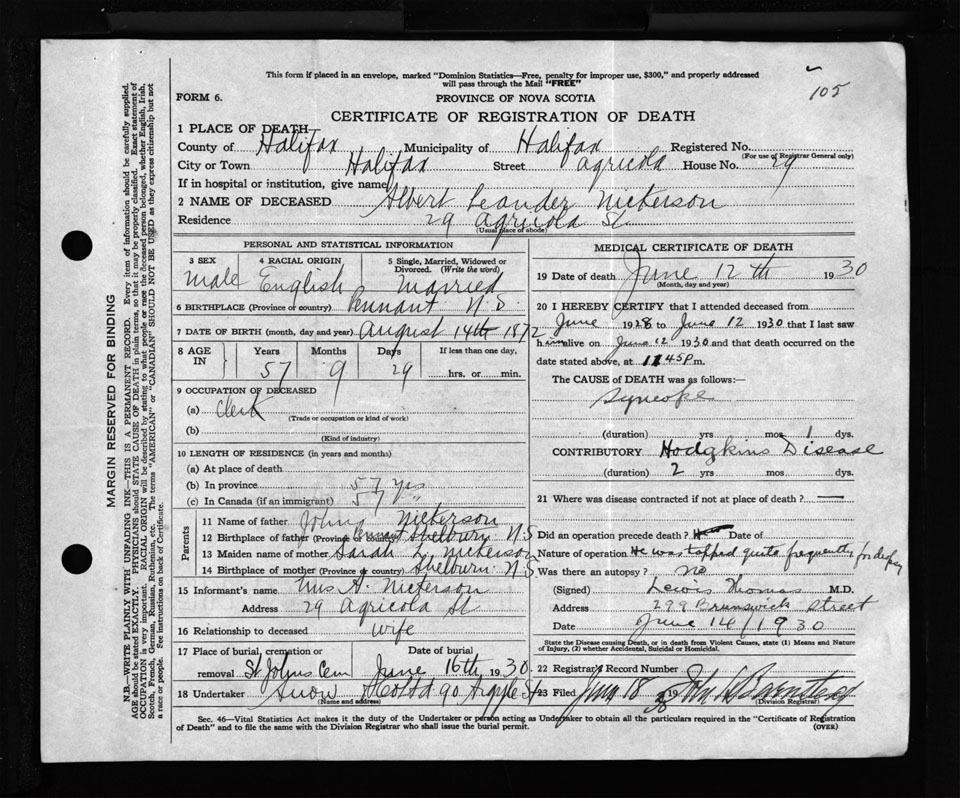 This form if placed in an envelope, marked "Dominion Statistics—Free, penalty for improper use, $300," and properly addressed
will pass through the Mail "FREE"
105
FORM 6.
PROVINCE OF NOVA SCOTIA
CERTIFICATE OF REGISTRATION OF DEATH
1 PLACE OF DEATH
County of Halifax Municipality of Halifax Registered No.
(For use of Registrar General only)
City or Town Halifax Street Agricola House No. 29
If in hospital or institution, give name
2 NAME OF DECEASED Albert Leander Nickerson
Residence 29 Agricola St.
(Usual place of abode)
PERSONAL AND STATISTICAL INFORMATION
3 SEX 4 RACIAL ORIGIN 5 Single, Married, Widowed or
Divorced. (Write the word)
male English Married
6 BIRTHPLACE (Province or country) Pennant N.S.
7 DATE OF BIRTH (month, day and year) August 14th 1872
8 AGE IN Years Months Days If less than one day,
57 9 29 hrs. or min.
9 OCCUPATION OF DECEASED
(a) Clerk
(Trade or occupation or kind of work)
(b)
(Kind of industry)
10 LENGTH OF RESIDENCE (in years and months)
(a) At place of death
(b) In province 57 yrs
(c) In Canada (if an immigrant) 57 "
Parents
11 Name of father John Nickerson
12 Birthplace of father (Province or country) Shelburn N.S
13 Maiden name of mother Sarah L. Nickerson
14 Birthplace of mother (Province or country) Shelburn N.S
15 Informant's name Mrs A. Nickerson
Address 29 Agricola St
16 Relationship to deceased wife
17 Place of burial, cremation or removal Date of burial
St Johns Cem June 16th 1930
18 Undertaker Snow & Co Ltd 90 Argyle St
(Name and address)
MEDICAL CERTIFICATE OF DEATH
19 Date of death June 12th 1930
(Month, day and year)
20 I HEREBY CERTIFY that I attended deceased from
June 1928 to June 12 1930 that I last saw
him alive on June 12 1930 and that death occurred on the
date stated above, at 11 45 P m.
The CAUSE of DEATH was as follows:
Syncope
(duration) yrs mos 1 dys.
CONTRIBUTORY Hodgkins Disease
(duration) 2 yrs mos dys.
21 Where was disease contracted if not at place of death? —
Did an operation precede death? Date of
Nature of operation He was tapped quite frequently for
Was there an autopsy? no
(Signed) Lewis Thomas M.D.
Address 299 Brunswick Street
Date June 14/1930
State the Disease causing Death, or in death from Violent Causes, state (1) Means and Nature
of Injury, (2) whether Accidental, Suicidal or Homicidal.
22 Registrar's Record Number
23 Filed 18 1930
(Division Registrar)
Sec. 46—Vital Statistics Act makes it the duty of the Undertaker or person acting as Undertaker to obtain all the particulars required in the "Certificate of Registration
of Death" and to file the same with the Division Registrar who shall issue the burial permit.
(OVER)
MARGIN RESERVED FOR BINDING
N.B.—WRITE PLAINLY WITH UNFADING INK—THIS IS A PERMANENT RECORD. Every item of information should be carefully supplied.
AGE should be stated EXACTLY. PHYSICIANS should STATE CAUSE OF DEATH in plain terms, so that it may be properly classified. Exact statement of
OCCUPATION is very important. RACIAL ORIGIN will be described by stating to what people or race the deceased person belonged, whether English, Irish,
Scotch, French, German, Russian, Ruthenian, etc. The terms "AMERICAN" or "CANADIAN" SHOULD NOT BE USED as they express citizenship but not
a race or people. See instructions on back of Certificate.